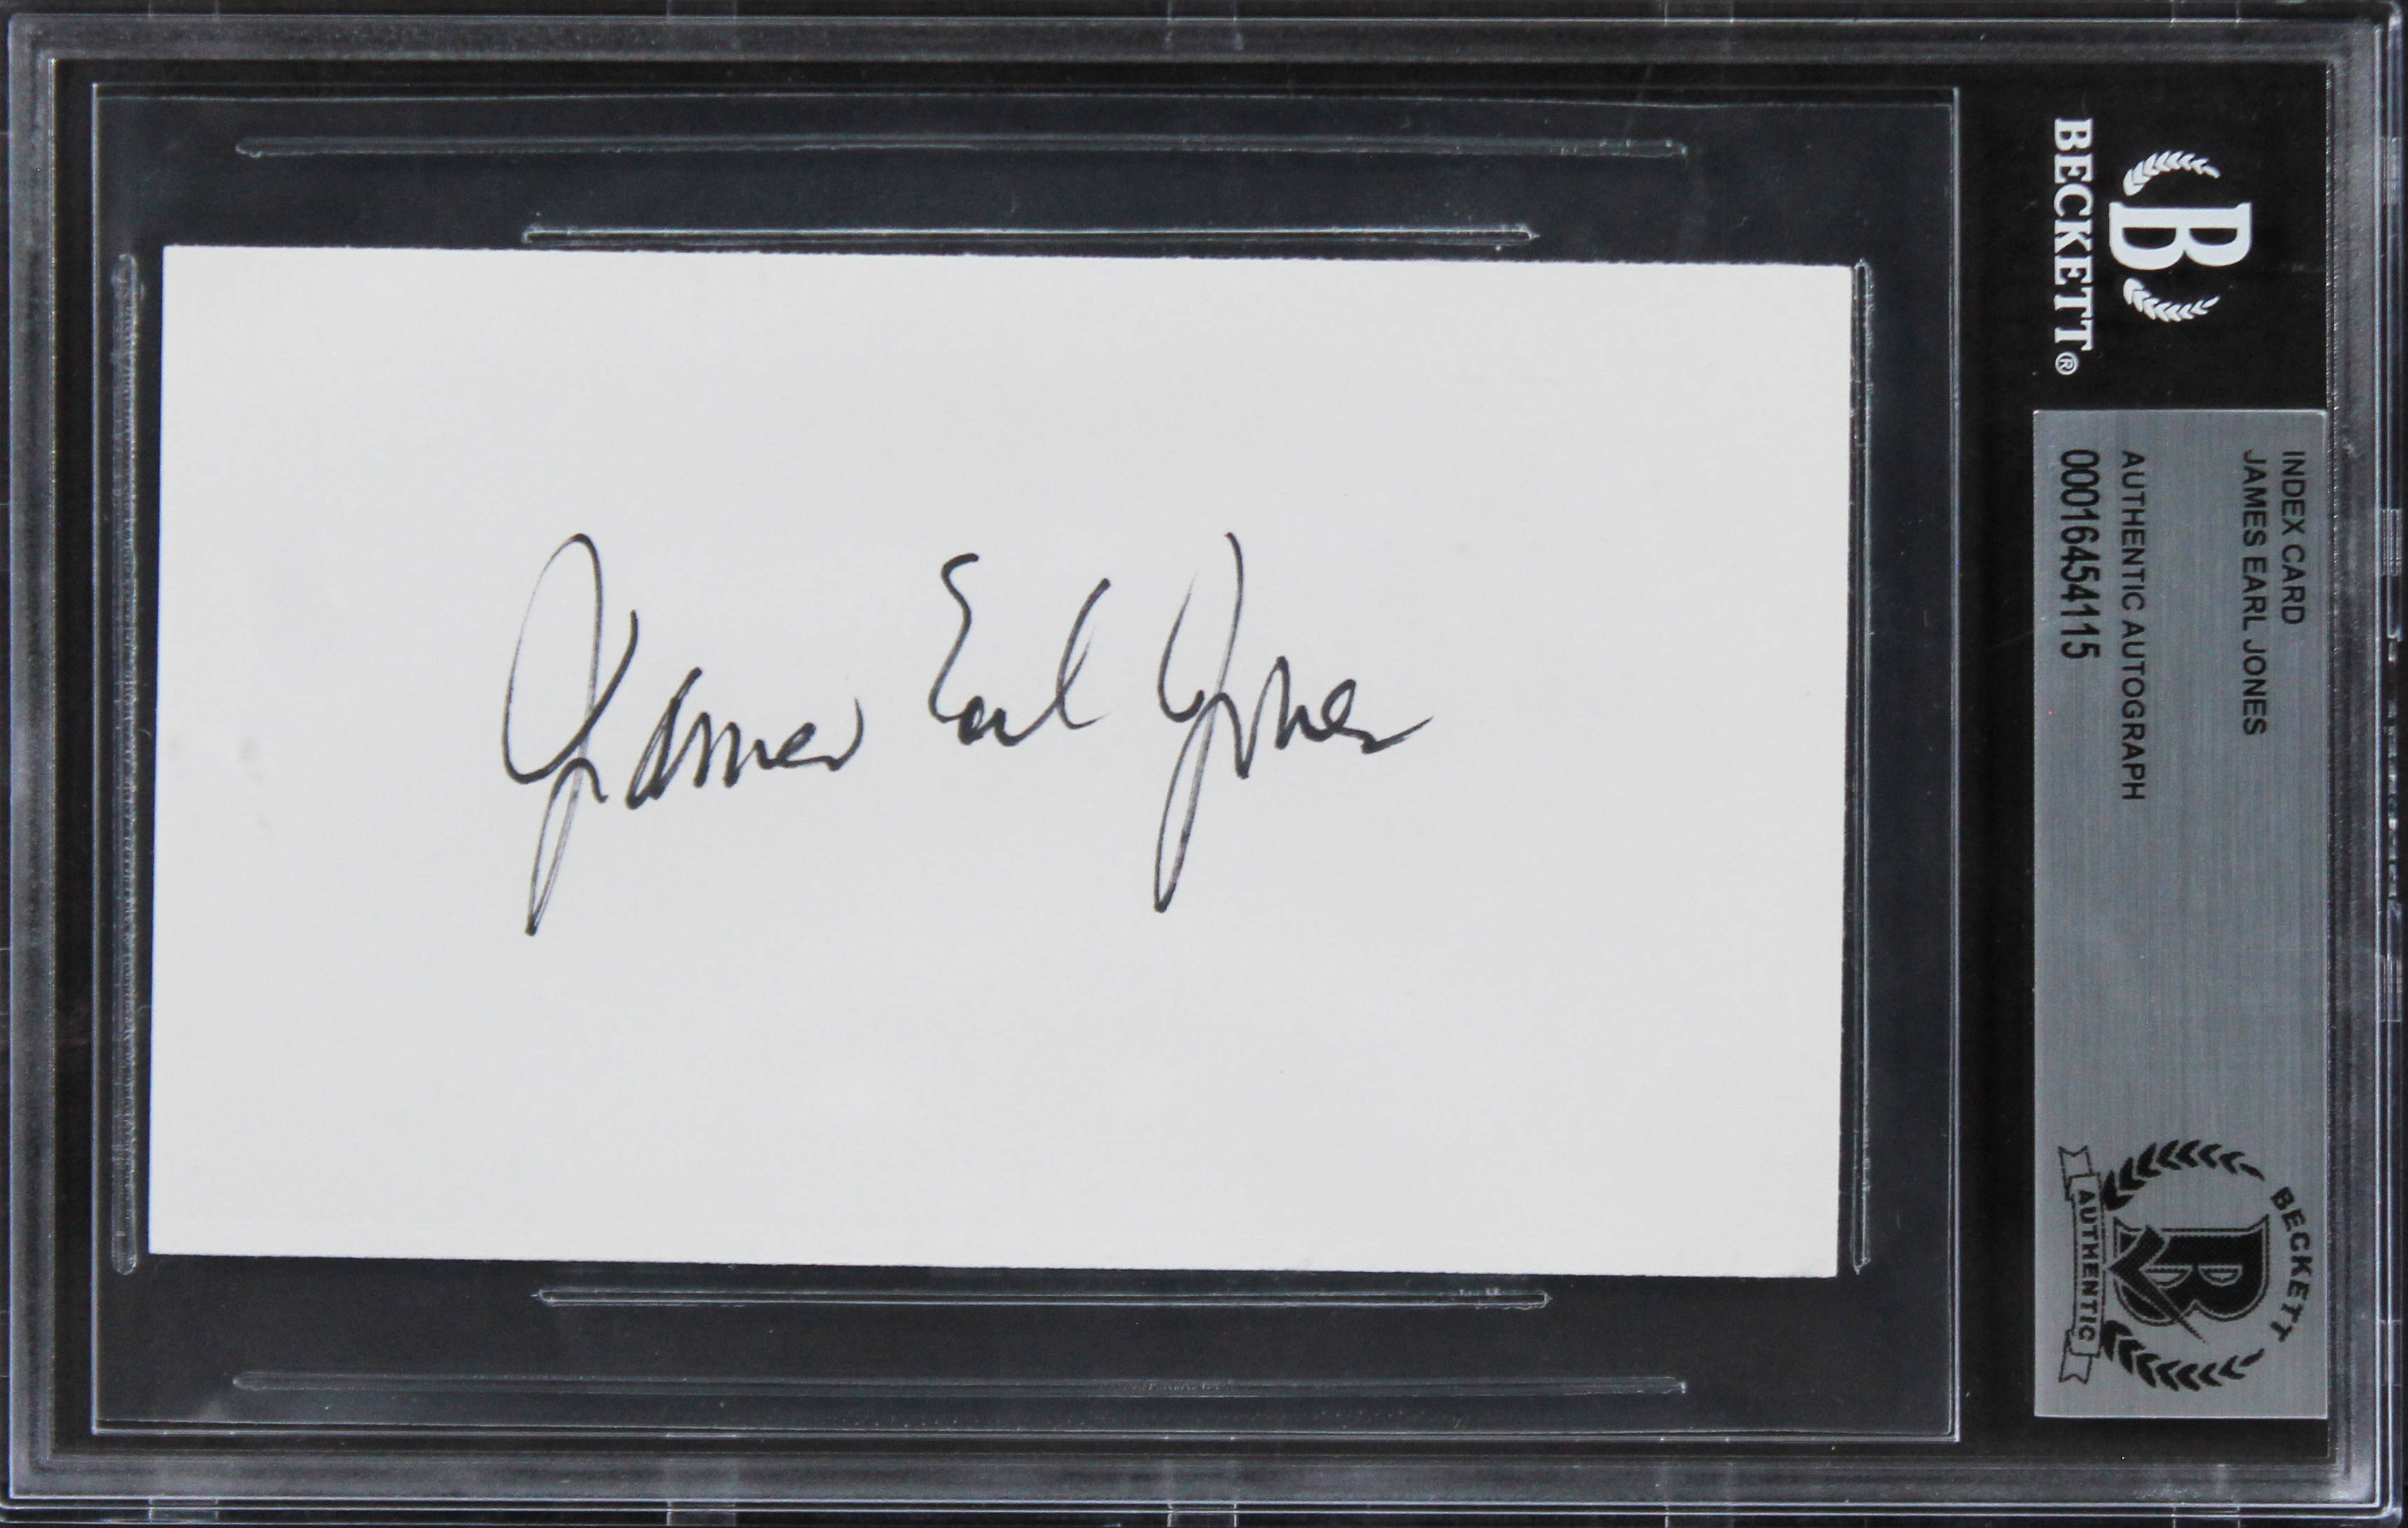 James Earl Jones
B
BECKETT®
INDEX CARD
JAMES EARL JONES
AUTHENTIC AUTOGRAPH
00016454115
BECKETT
B
AUTHENTIC